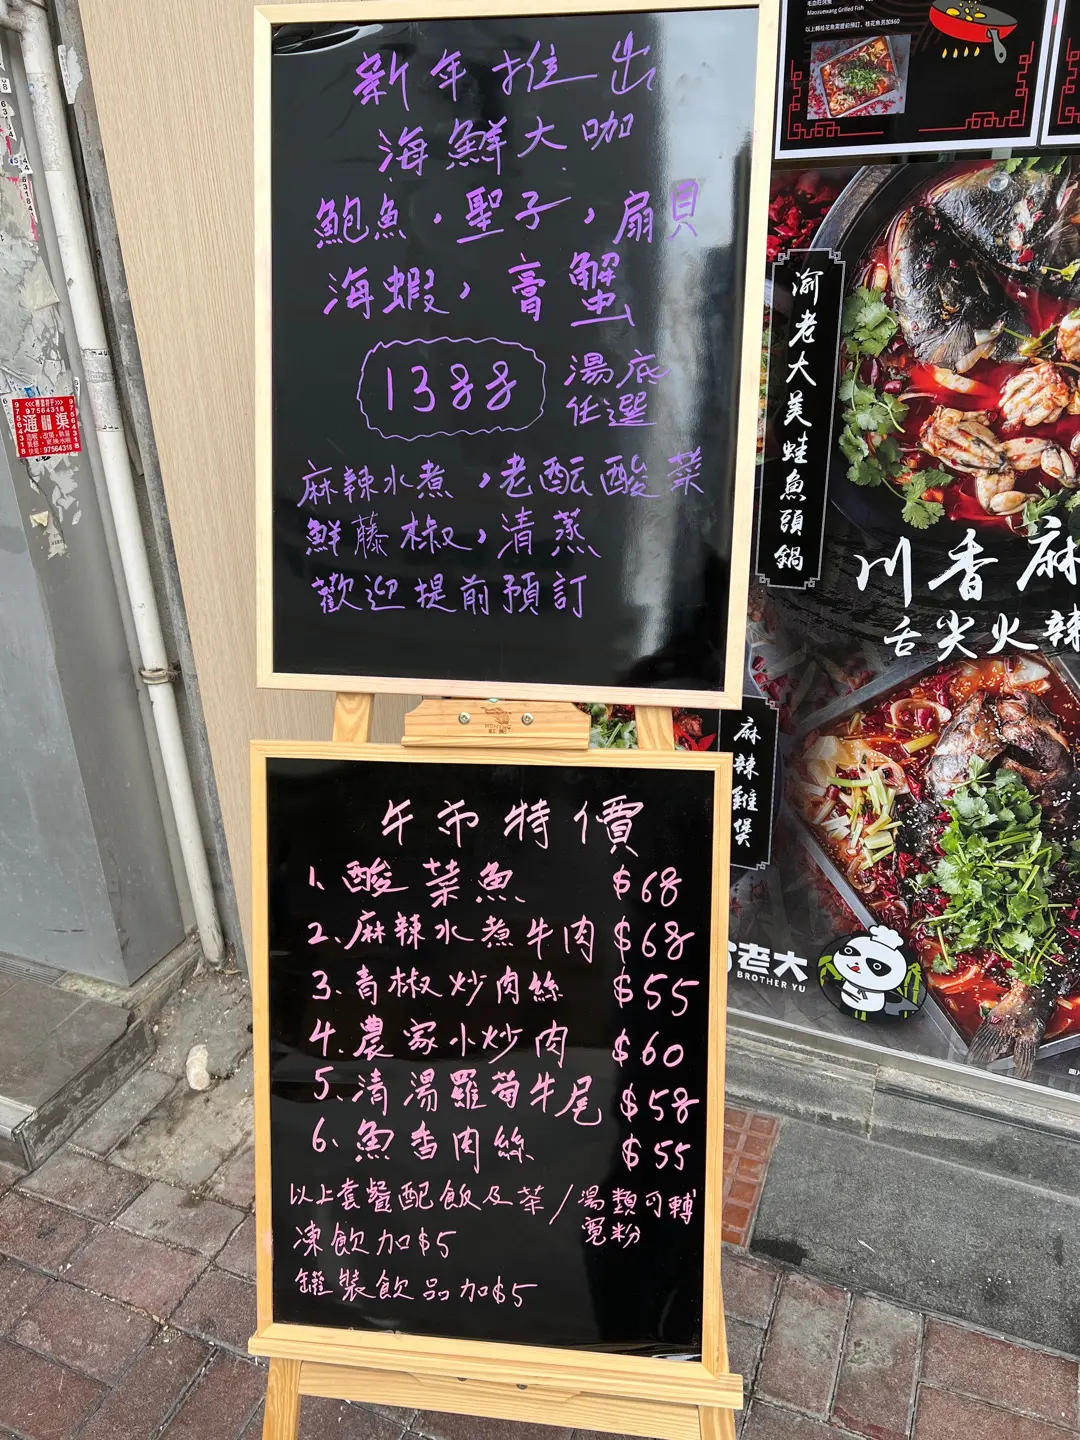 新年推出
海鮮大咖
鮑魚，聖子，扇貝
海蝦，膏蟹
1388
湯底
任選
麻辣水煮，老酝酸菜
鮮藤椒，清蒸
歡迎提前預訂
午市特價
1、酸菜魚 $68
2、麻辣水煮牛肉 $68
3、青椒炒肉絲 $55
4、農家小炒肉 $60
5、清湯羅蔔牛尾 $58
6、魚香肉絲 $55
以上套餐配飯及茶/湯類可轉
寬粉
凍飲加$5
罐裝飲品加$5
Maoxuewang Grilled Fish
渝老大美蛙魚頭鍋
川香麻
舌尖火辣
麻辣雞煲
老大
BROTHER YU
97564318
通渠